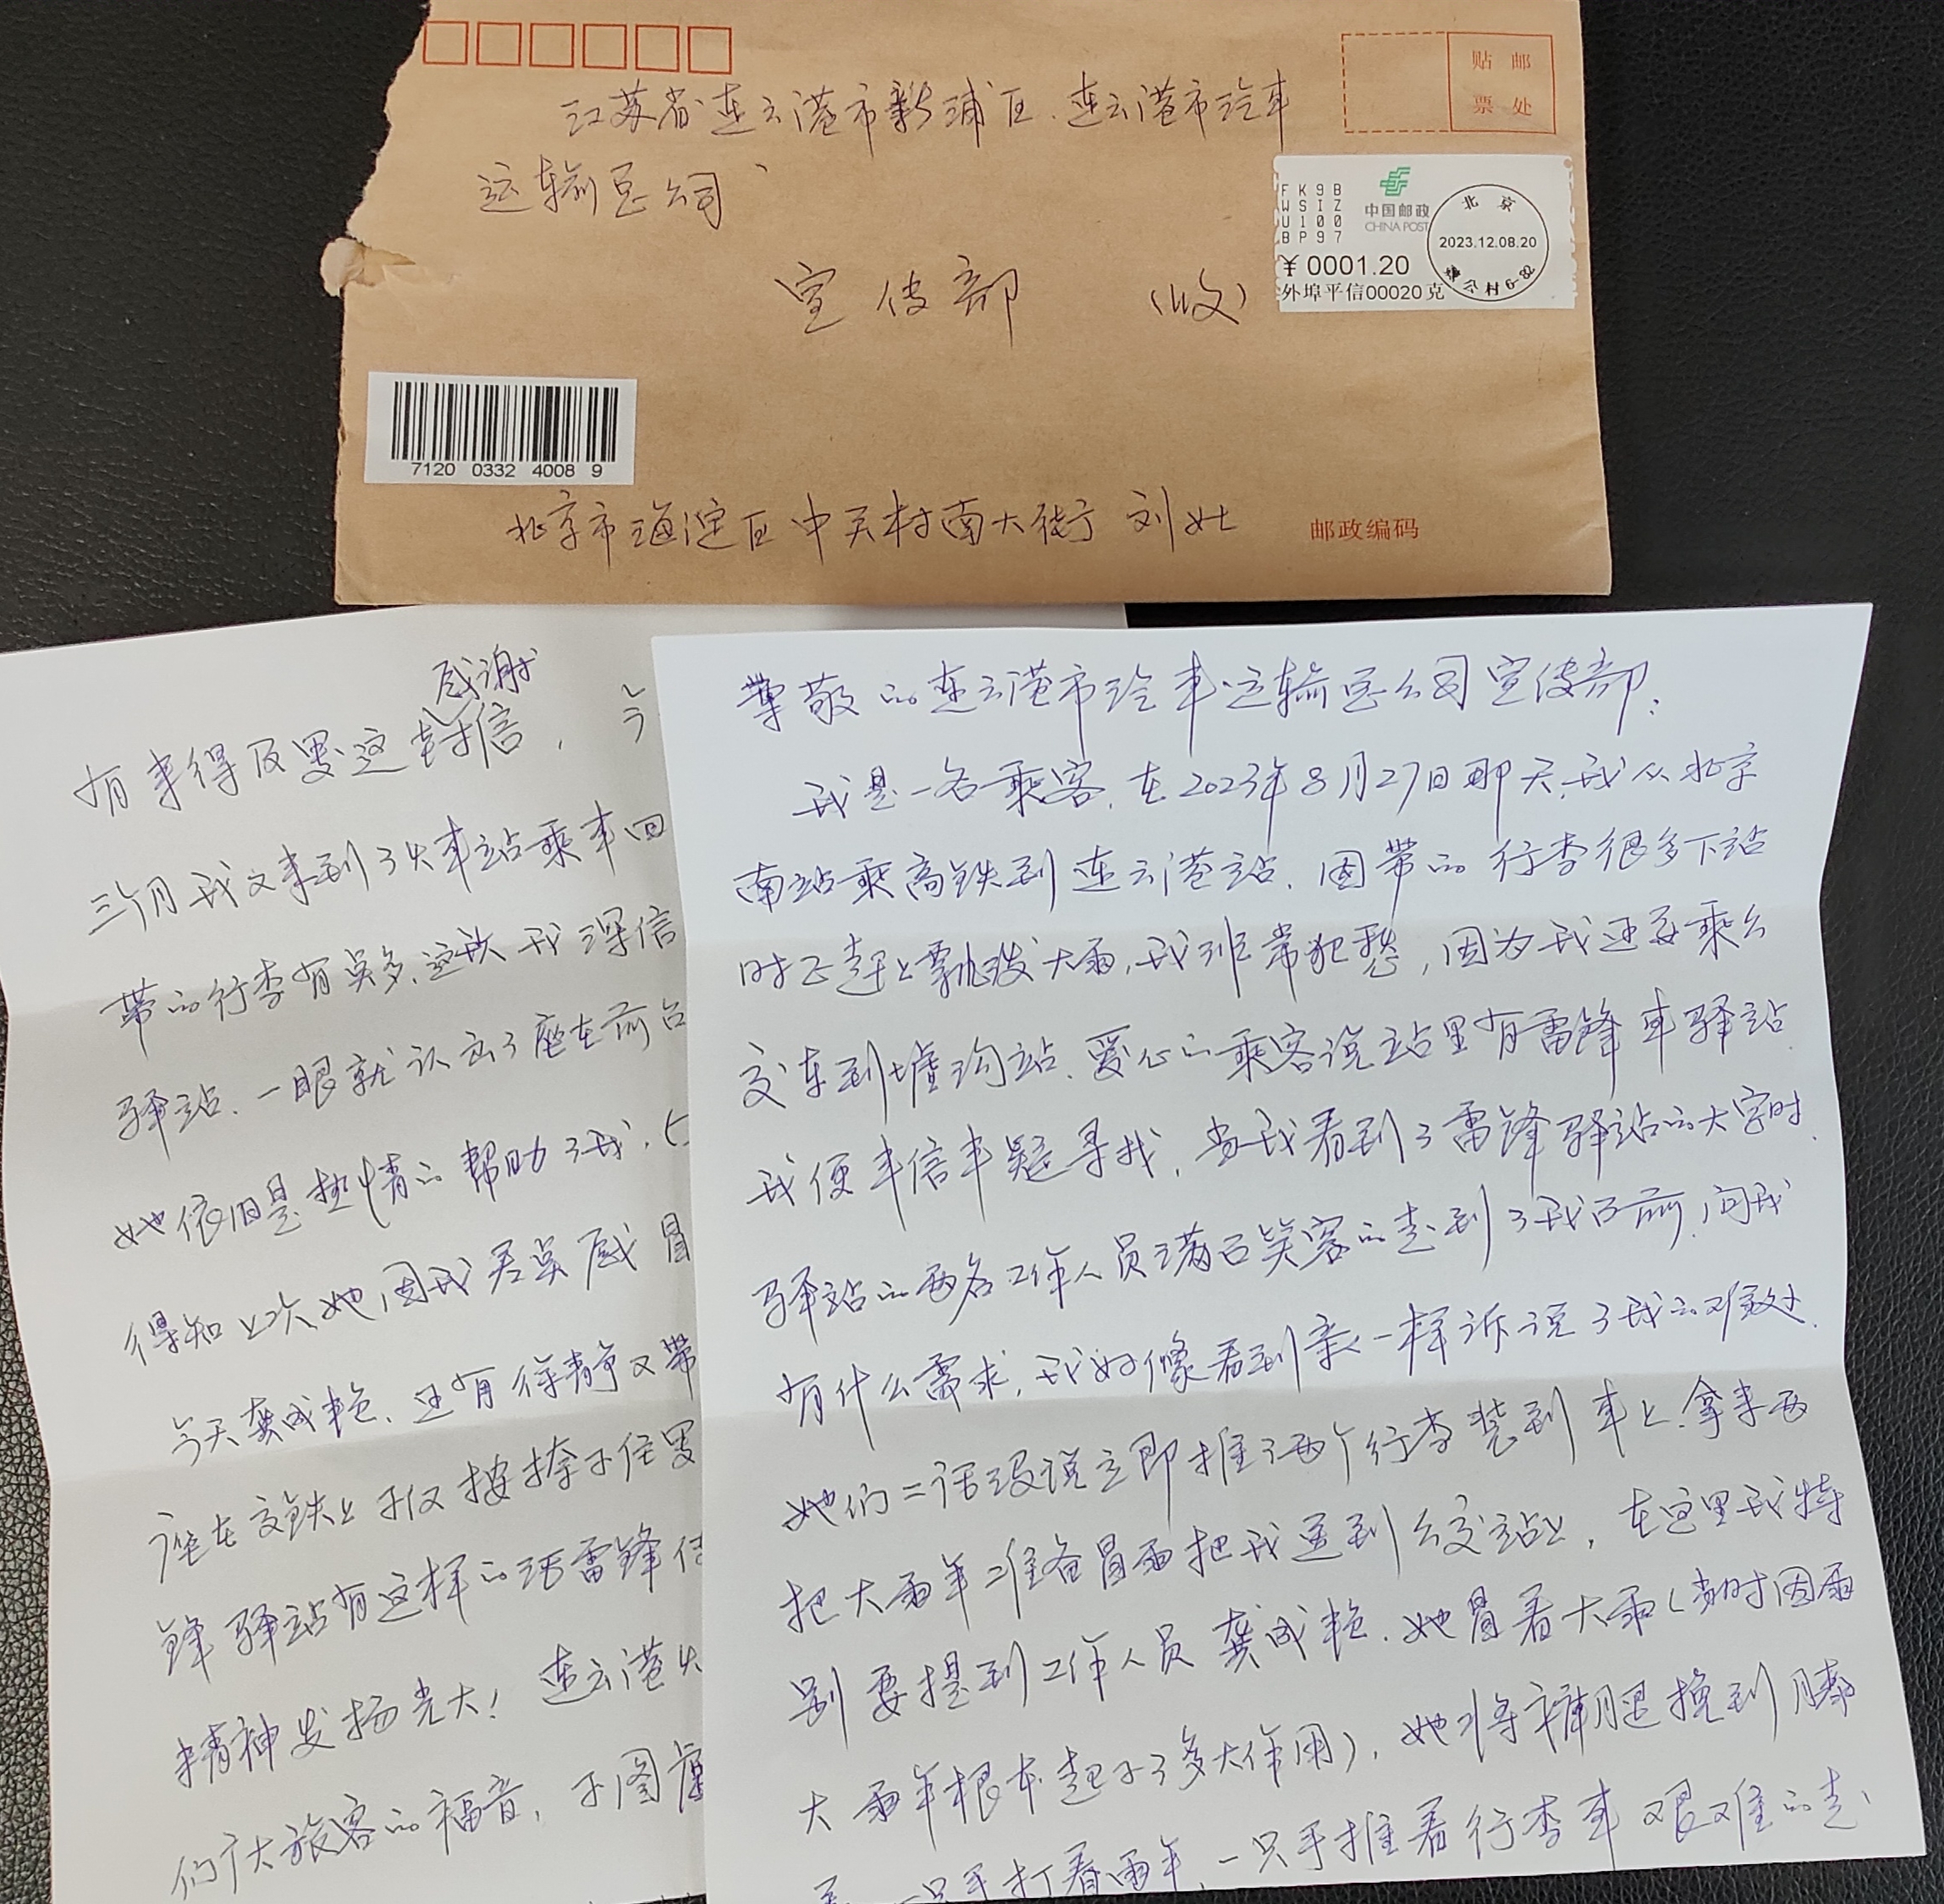 贴 邮
票 处
江苏省连云港市新浦区.连云港市汽车
运输总公司
宣传部 (收)
FK9B
WSIZ
U100
BP97
中国邮政
CHINA POST
北京
2023.12.08.20
¥ 0001.20
外埠平信00020克
7120 0332 4008 9
北京市海淀区中关村南大街 刘女士
邮政编码
感谢
有来得及写这封信, 今
三个月我又来到了火车站乘车回
带的行李有点多,这次我深信
驿站.一眼就认出了座在前台
她依旧是热情的帮助了我,
得知上次她因我着点感冒
今天龚成艳,还有徐静又带
座在高铁上不仅按捺不住写
锋驿站有这样的活雷锋传
精神发扬光大!连云港火
们广大旅客的福音,不图
尊敬的连云港市汽车运输总公司宣传部:
我是一名乘客.在2023年8月27日那天,我从北京
南站乘高铁到连云港站.因带的行李很多下站
时正赶上瓢泼大雨,我非常犯愁,因为我还要乘公
交车到墟沟站.爱心的乘客说站里有雷锋车驿站.
我便半信半疑寻找,当我看到了雷锋驿站的大字时.
驿站的两名工作人员满面笑容的走到了我面前,问我
有什么需求,我好像看到亲人一样诉说了我的难处.
她们二话没说立即推了两个行李装到车上.拿来两
把大雨伞准备冒雨把我送到公交站上,在这里我特
别要提到工作人员龚成艳.她冒着大雨(当时因雨
大雨伞根本起不了多大作用),她将裤腿挽到膝
一只手打着雨伞,一只手推着行李车艰难的走,